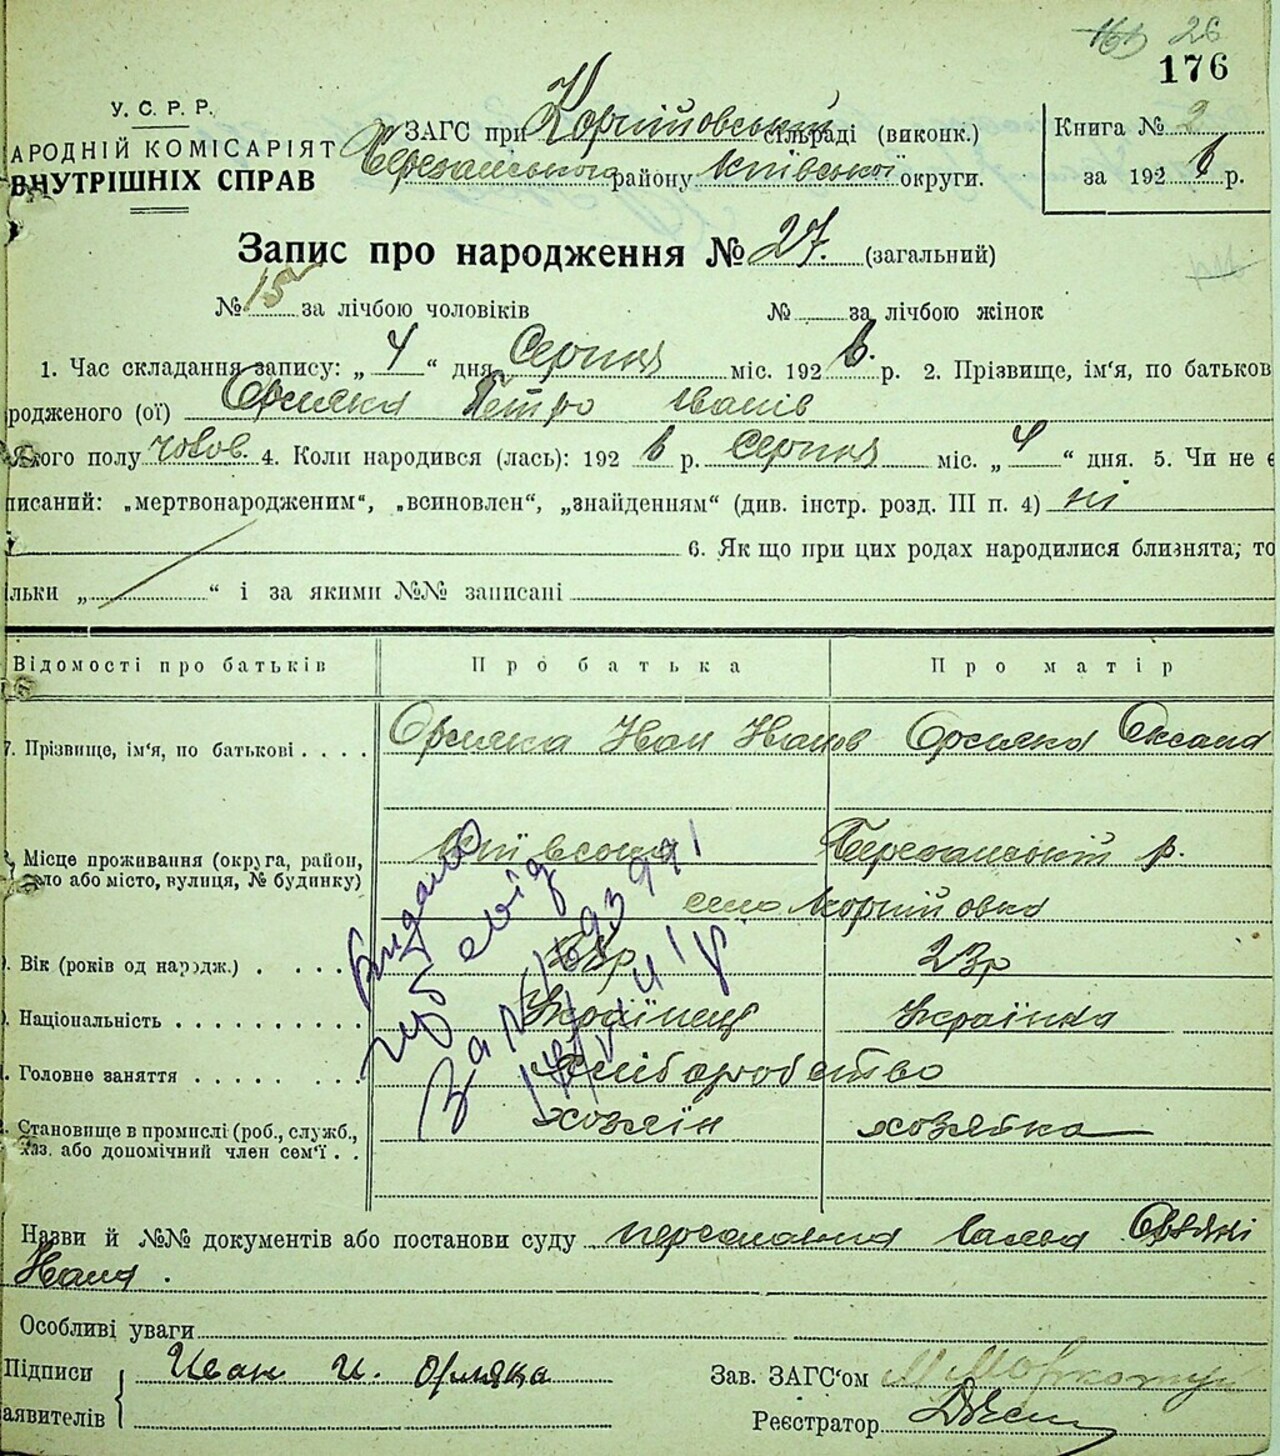 26
176
У. С. Р. Р.
АРОДНІЙ КОМІСАРІЯТ
ВНУТРІШНІХ СПРАВ
ЗАГС при сільраді (виконк.)
Березанського району Київської округи.
Книга № 2
за 1926 р.
Запис про народження № 27. (загальний)
№ 15 за лічбою чоловіків № за лічбою жінок
1. Час складання запису: „ 4 “ дня Серпня міс. 1926 р. 2. Прізвище, ім‘я, по батьков
родженого (ої) Орляка Петро Іванів
якого полу чолов. 4. Коли народився (лась): 1926 р. Серпня міс. „ 4 “ дня. 5. Чи не є
писаний: „мертвонародженим“, „всиновлен“, „знайденням“ (див. інстр. розд. III п. 4) ні
6. Як що при цих родах народилися близнята, то
ільки „ “ і за якими №№ записані
Відомості про батьків Про батька Про матір
7. Прізвище, ім‘я, по батькові . . . . Орляка Иван Иванов Орляка Оксана
Місце проживання (округа, район, Київська Березанський р.
село або місто, вулиця, № будинку)
село
. Вік (років од народж.) . . . . 23р
. Національність . . . . . . . . . . Українець Українка
. Головне заняття . . . . . . . . хліборобство
. Становище в промислі (роб., служб., хозяїн хозяйка
хаз. або допомічний член сем‘ї . .
Видано
за №
Назви й №№ документів або постанови суду персональна заява Орляки
Ивана .
Особливі уваги
Підписи Иван И. Орляка Зав. ЗАГС‘ом
аявителів Реєстратор